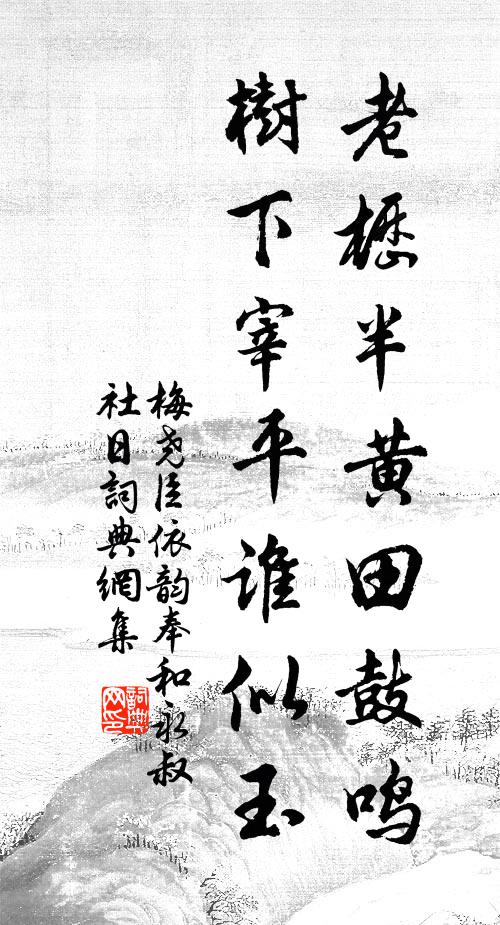 老櫪半黃田鼓鳴
樹下宰平誰似玉
梅堯臣依韵奉和永叔
社日詞典網集
詞典网印